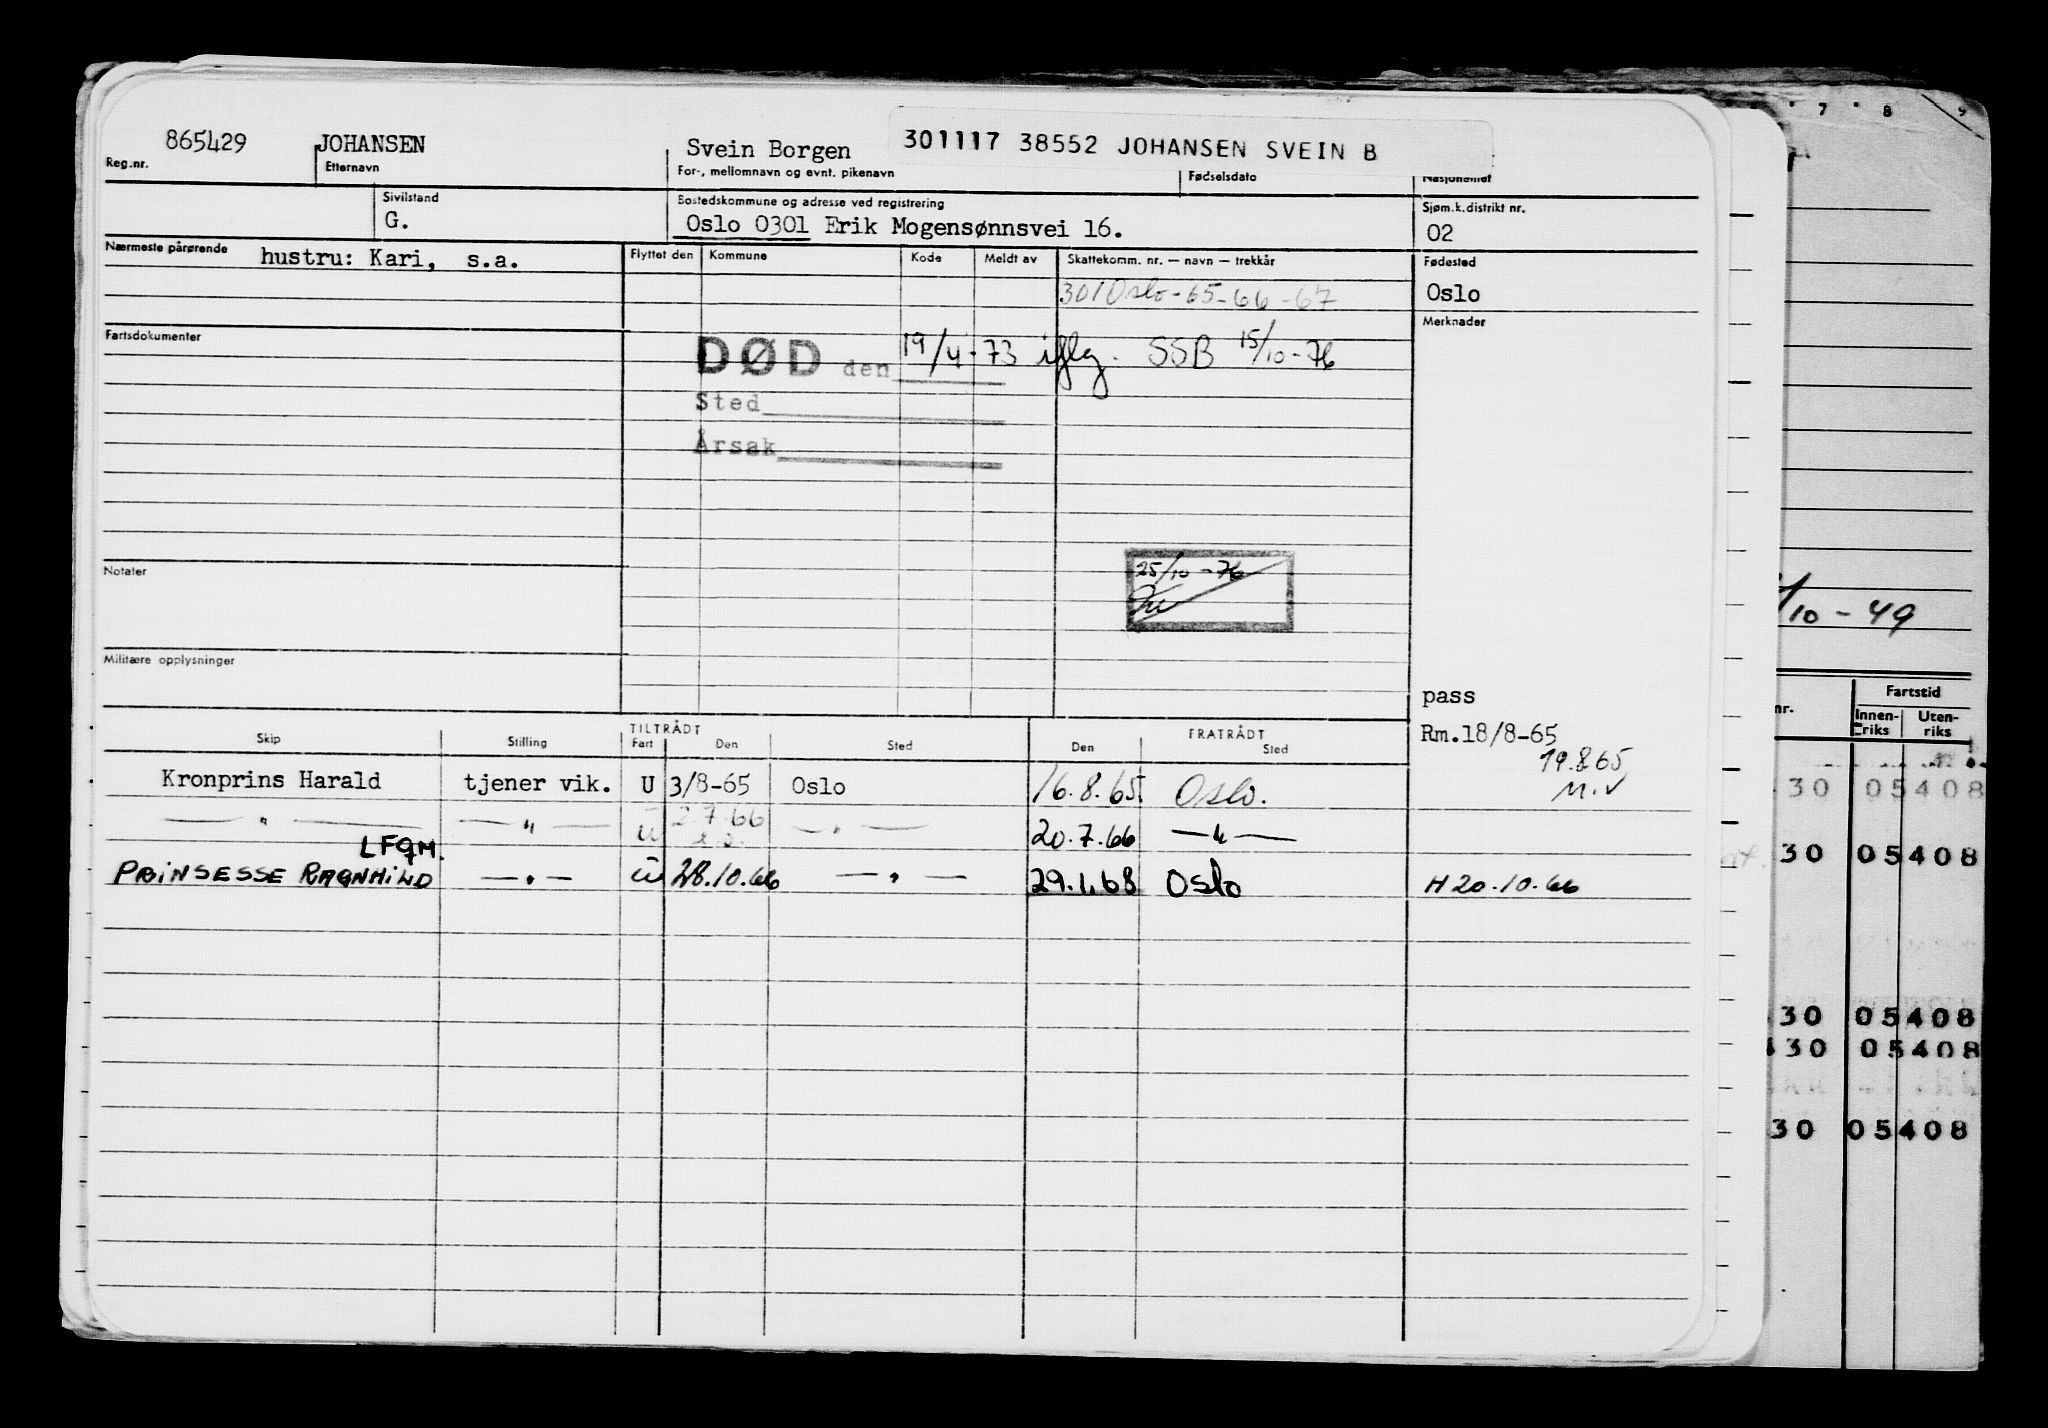 865429 JOHANSEN Svein Borgen 301117 38552 JOHANSEN SVEIN B
Reg.nr. Etternavn For-, mellomnavn og evnt. pikenavn Fødselsdato Nasjonalitet
Sivilstand Bostedskommune og adresse ved registrering Sjøm.k.distrikt nr.
G. Oslo 0301 Erik Mogensønnsvei 16. 02
Nærmeste pårørende hustru: Kari, s.a. Flyttet den Kommune Kode Meldt av Skattekomm. nr. — navn — trekkår Fødested
301 Oslo-65-66-67 Oslo
Fartsdokumenter Merknader
DØD den 19/4-73 iflg. SSB 15/10-76
Sted
Årsak
Notater
25/10-76
Militære opplysninger
pass
Rm.18/8-65
19.8.65
M.V
TILTRÅDT FRATRÅDT
Skip Stilling Fart Den Sted Den Sted
Kronprins Harald tjener vik. U 3/8-65 Oslo 16.8.65 Oslo.
— " — — " — U 2.7.66 — " — 20.7.66 — " —
LFQM.
PRINSESSE RAGNHILD — " — U 28.10.66 — " — 29.1.68 Oslo H 20.10.66
7 8 9
/10-49
nr. Fartstid
Innen-riks Uten-riks
30 05408
30 05408
30 05408
430 05408
30 05408